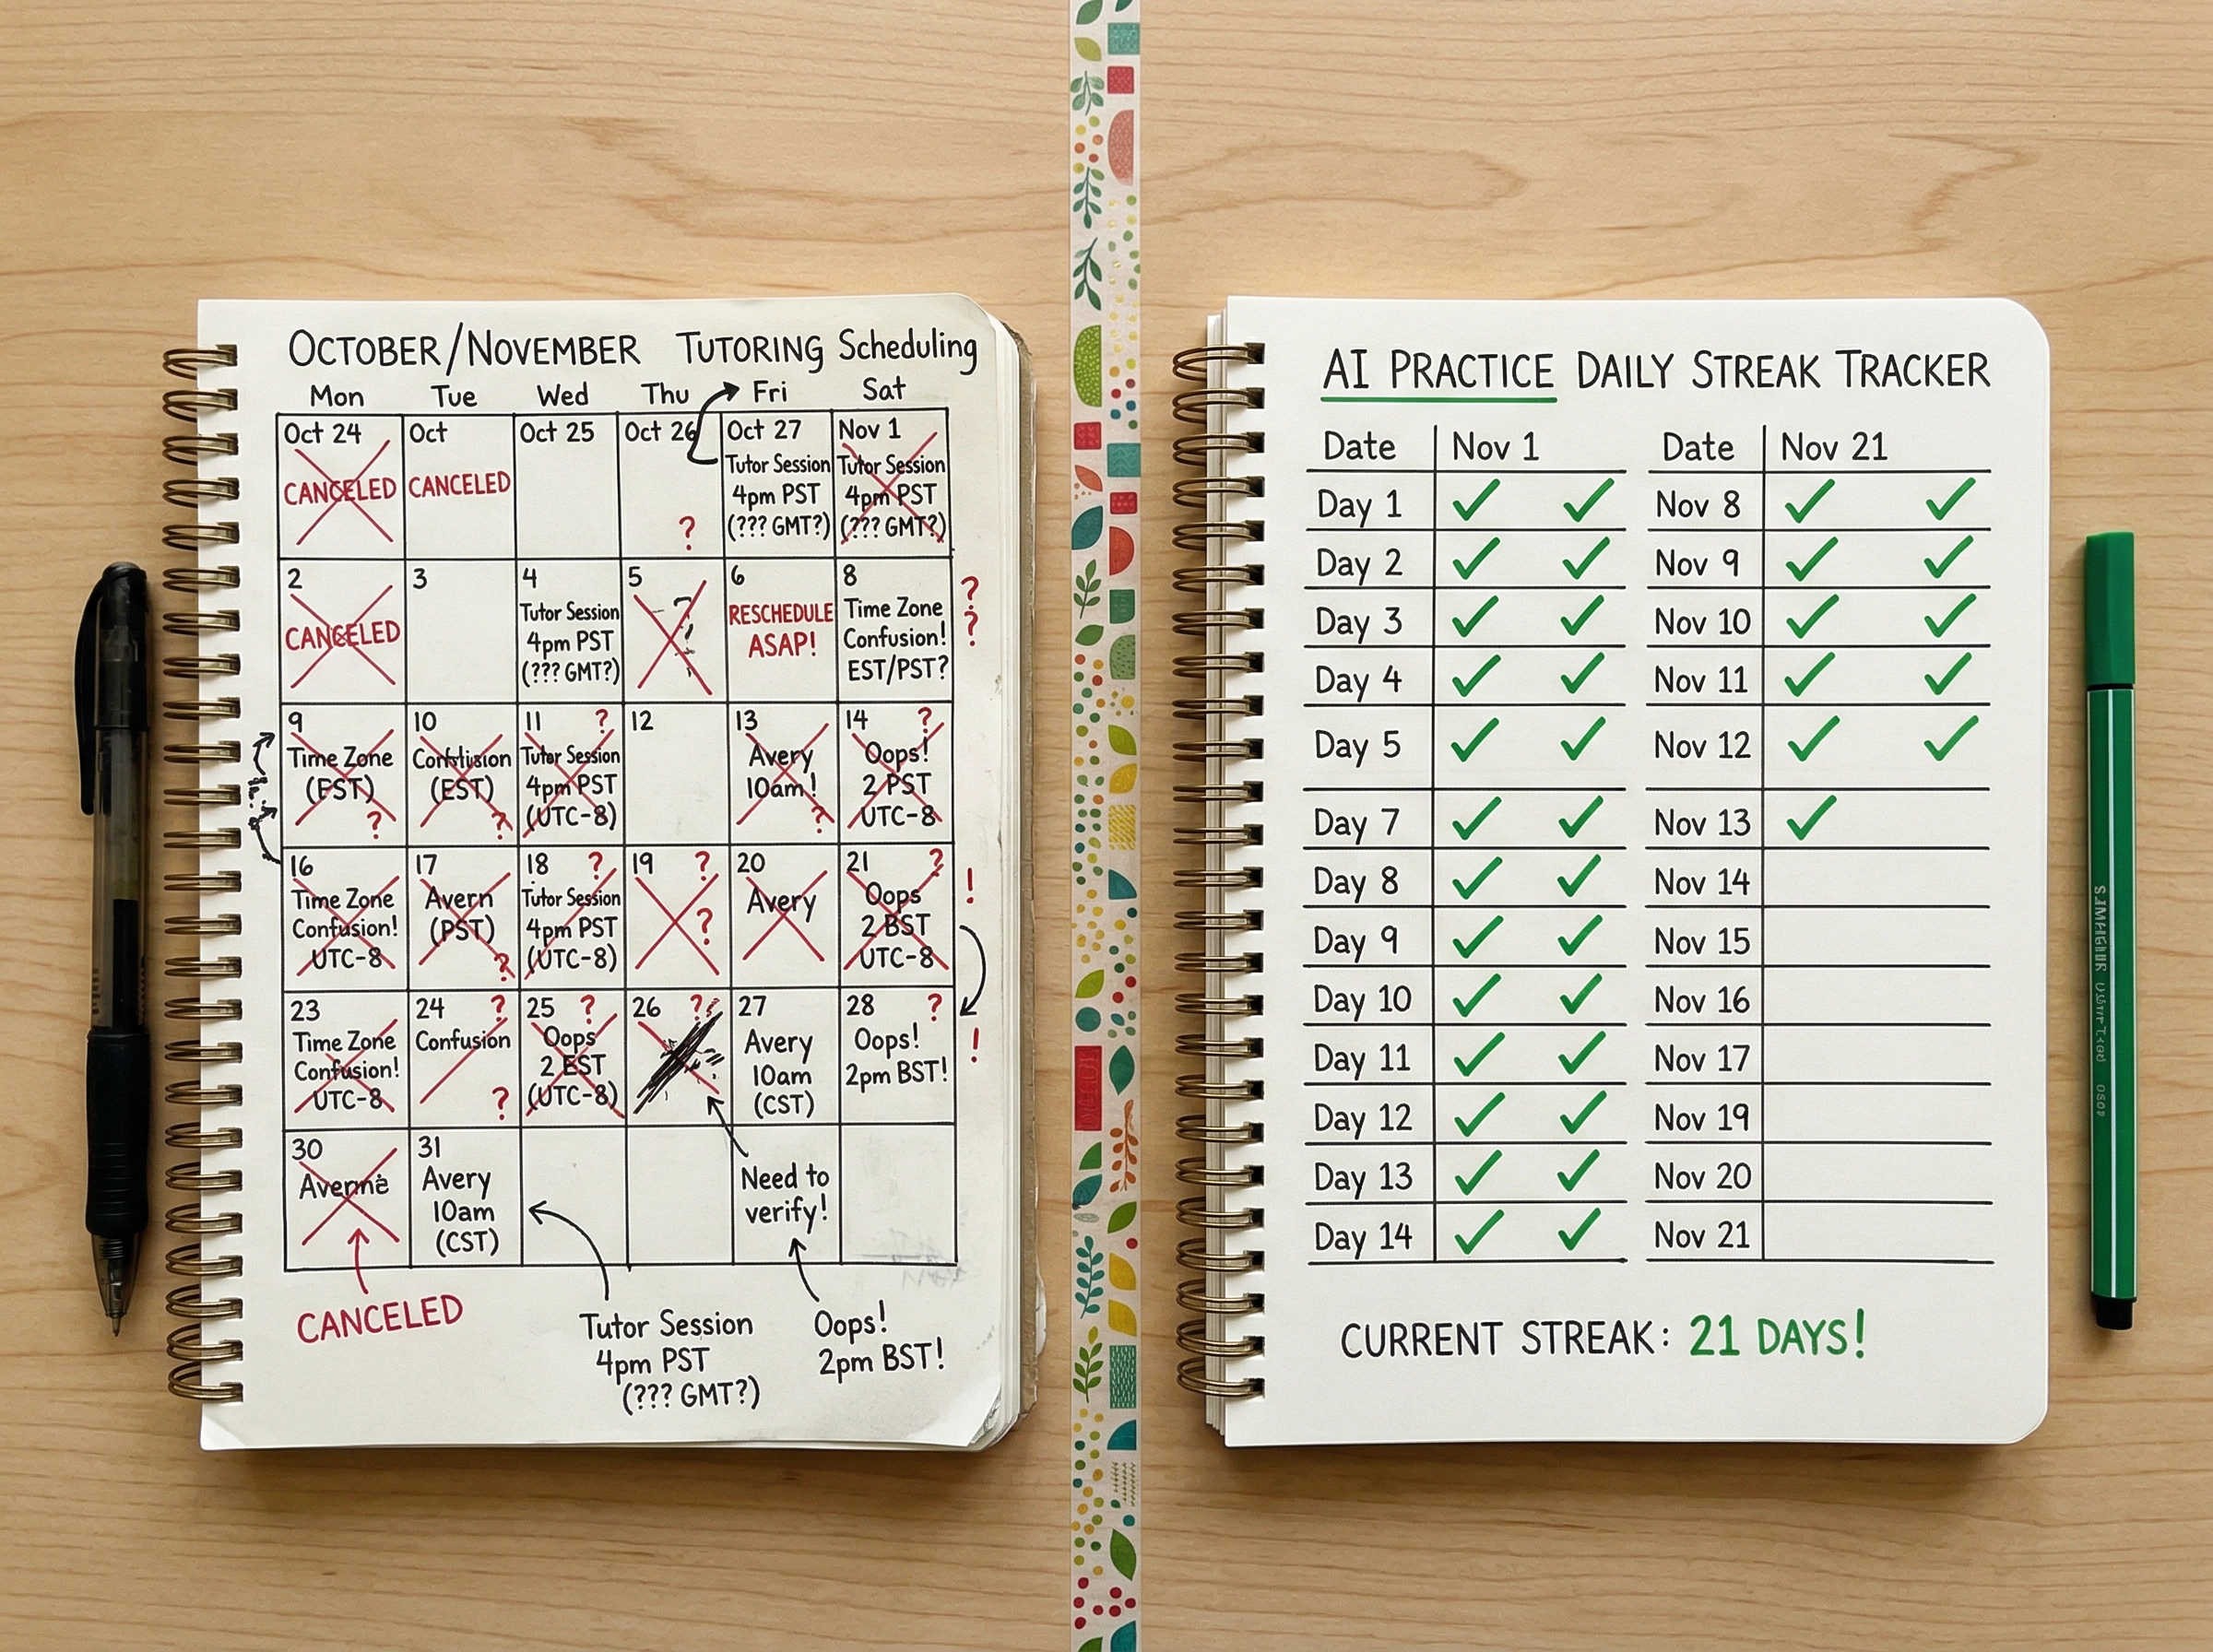 OCTOBER/NOVEMBER TUTORING Scheduling
Mon Tue Wed Thu Fri Sat
Oct 24
CANCELED
Oct
CANCELED
Oct 25
Oct 26
?
Oct 27
Tutor Session
4pm PST
(??? GMT?)
Nov 1
Tutor Session
4pm PST
(??? GMT?)
2
CANCELED
3
4
Tutor Session
4pm PST
(??? GMT?)
5
?
6
RESCHEDULE
ASAP!
8
Time Zone
Confusion!
EST/PST?
?
?
9
Time Zone
(EST)
?
10
(EST)
?
11 ?
Tutor Session
4pm PST
(UTC-8)
12
13
Avery
10am!
?
14 ?
Oops!
2 PST
UTC-8
16
Time Zone
Confusion!
UTC-8
17
Avern
(PST)
?
18 ?
Tutor Session
4pm PST
(UTC-8)
19 ?
?
20
Avery
21 ?
Oops
2 BST
UTC-8
!
23
Time Zone
Confusion!
UTC-8
24 ?
Confusion
?
25 ?
Oops
2 EST
(UTC-8)
26 ?
27
Avery
10am
(CST)
28 ?
Oops!
2pm BST!
!
30
31
Avery
10am
(CST)
Need to
verify!
CANCELED
Tutor Session
4pm PST
(??? GMT?)
Oops!
2pm BST!
AI PRACTICE DAILY STREAK TRACKER
Date Nov 1
Day 1 ✓ ✓
Day 2 ✓ ✓
Day 3 ✓ ✓
Day 4 ✓ ✓
Day 5 ✓ ✓
Day 7 ✓ ✓
Day 8 ✓ ✓
Day 9 ✓ ✓
Day 10 ✓ ✓
Day 11 ✓ ✓
Day 12 ✓ ✓
Day 13 ✓ ✓
Day 14 ✓ ✓
Date Nov 21
Nov 8 ✓ ✓
Nov 9 ✓ ✓
Nov 10 ✓ ✓
Nov 11 ✓ ✓
Nov 12 ✓ ✓
Nov 13 ✓
Nov 14
Nov 15
Nov 16
Nov 17
Nov 19
Nov 20
Nov 21
CURRENT STREAK: 21 DAYS!